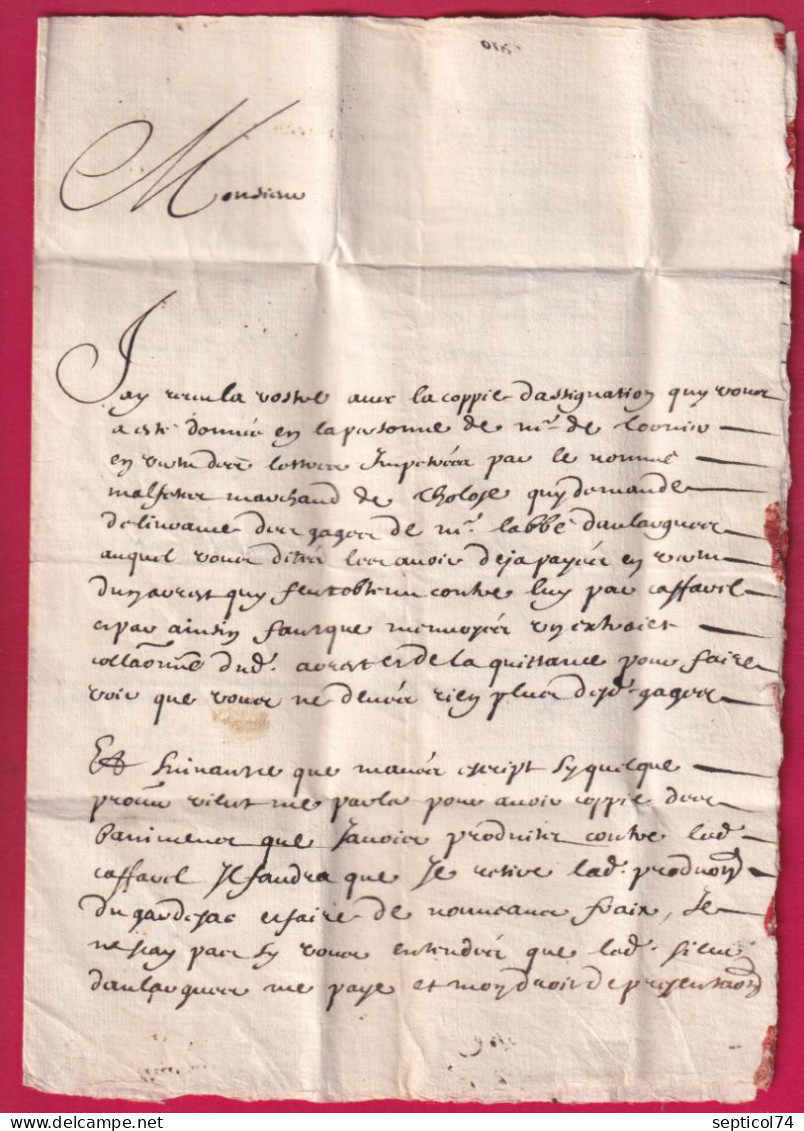 Monsieur
Jay receu la vostre avec la coppie dassignation quy vous
a esté donnée en la personne de mr. de
en vertu des lettres Impetrées par le nommé
marchand de Tholose quy demande
delivrance des gages de mr. labbé daulargues
auquel vous dittes les avoir deja payées en vertu
dun arrest quy feut obtenu contre luy par caffarel
et par ainsin faut que menvoyées un extraict
collaonné dud. arrest et de la quittance pour faire
voir que vous ne devées rien plus desd. gages
Et suivant ce que mavés escript sy quelque
procur vient me parler pour avoir coppie des
que javois produites contre led.
caffarel Il faudra que Je retire lad. produon
du gardesac et faire de nouveaux fraix, Je
ne scay pas sy vous entendés que led. sieur
daulargues me paye et mon droit de presentaon
septicol74
©delcampe.net